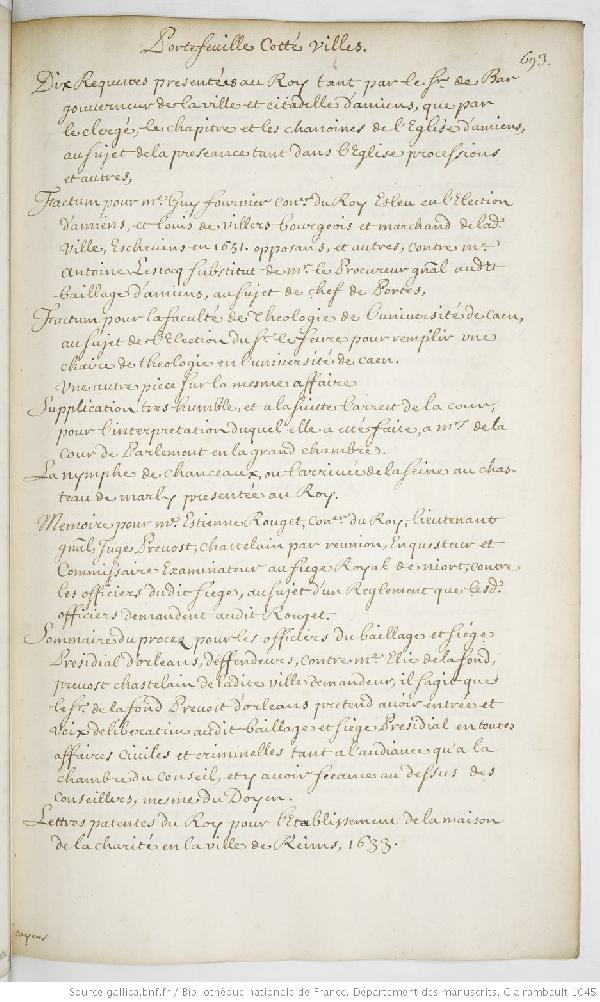 Portefeuille Cotté Villes.
693.
Dix Requestes presentées au Roy tant par le Sr. de Bar
gouverneur de la ville et citadelle d'amiens, que par
le clergé, le chapitre et les chanoines de l'Eglise d'amiens,
au sujet de la preseance tant dans l'Eglise processions
et autres,
Factum pour me. Guy fournier conser. du Roy Esleu en l'Election
d'amiens, et Louis de villers bourgeois et marchand de lade.
ville, Eschevins en 1651. opposans, et autres, contre me.
Antoine Lestocq substitut de mr. le Procureur gnãl audit
baillage d'amiens, au sujet de chef de Portes,
Factum pour la faculté de Theologie de l'université de Caen,
au sujet de l'Election du Sr. le fevre pour remplir vne
chaire de theologie en l'université de caen.
Vne autre piece sur la mesme affaire
Supplication tres humble, et a la suite l'arrest de la cour,
pour l'interpretation duquel elle a esté faite, a mrs. de la
cour de Parlement en la grand chambre.
La nymphe de Chanceaux, ou l'arrivée de la seine au chas-
teau de marly presentée au Roy.
Memoire pour me. Estienne Rouget, conser. du Roy, lieutenant
gnãl, Juge Prevost, chastelain par reunion, Enquesteur et
Commissaire Examinateur au siege Royal de niort, contre
les officiers dudit siege, au sujet d'un Reglement que lesd.
officiers demandent audit Rouget.
Sommaire du procez pour les officiers du baillage et siége
Presidial d'orleans, deffendeurs, contre me. Elie de la fond,
prevost chastelain de ladite ville demandeur, il s'agit que
le Sr. de la fond Prevost d'orleans pretend avoir entrée et
voix deliberative audit baillage et siege Presidial en toutes
affaires civiles et criminelles tant a l'audiance qu'a la
chambre du conseil, et y avoir seéance au dessus des
conseillers, mesme du Doyen.
Lettres patentes du Roy pour l'Etablissement de la maison
de la charité en la ville de Reims, 1633.
Source gallica.bnf.fr / Bibliothèque nationale de France. Département des manuscrits. Clairambault 1045